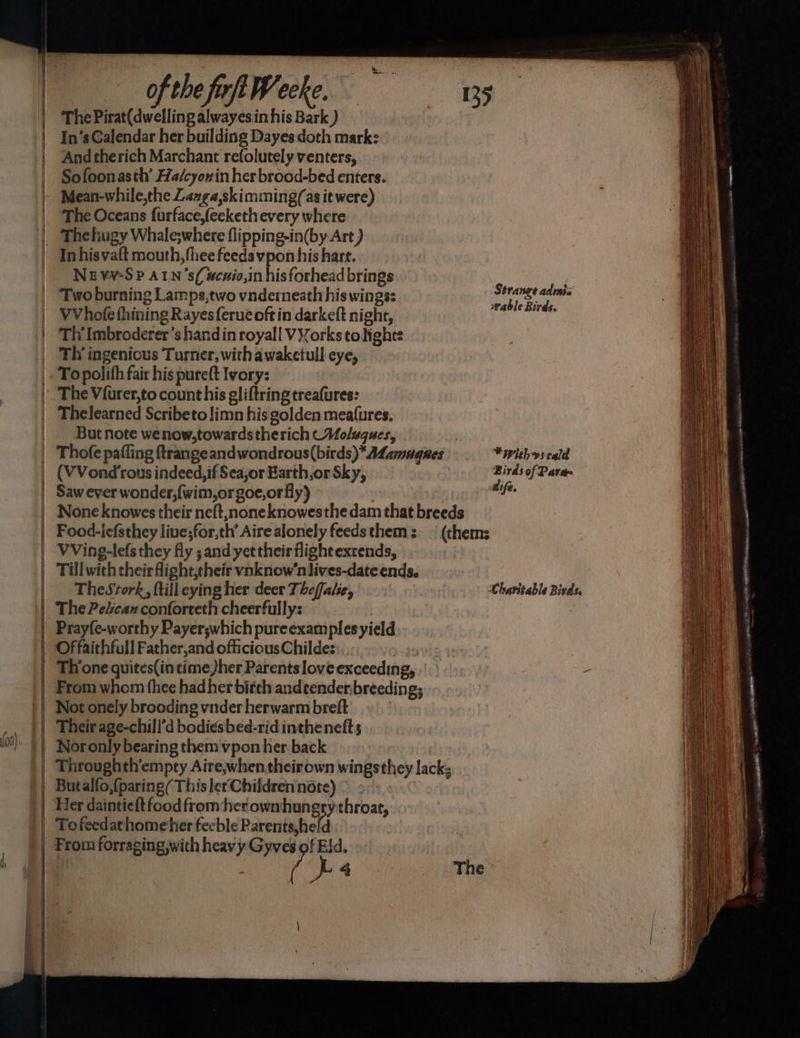 of the firſt Weeke. 135
The Pirat (dwelling alwayes in his Bark)
In's Calendar her building Dayes doth mark:
And the rich Marchant reſolutely venters,
So ſoon as th' Halcyon in her brood-bed enters.
Mean-while, the Langa, skimming (as it were)
The Oceans ſurface, ſeeketh every where
The hugy Whale; where ſlipping-in (by Art)
In his vaſt mouth, ſhee feeds vpon his hart.
NEVV-SPAIN'S Cucuio, in his forhead brings
Two burning Lamps, two vnderneath his wings:
VVhoſe ſhining Rayes ſerue oft in darkeſt night,
Th' Imbroderer's hand in royall VVorks to light:
Th' ingenious Turner, with a wakefull eye,
To poliſh fair his pureſt Ivory:
The Vſurer, to count his gliſtring treaſures:
The learned Scribe to limn his golden meaſures.
But note we now, towards the rich Moluques,
Thoſe paſſing ſtrange and wondrous (birds) * Mamuques
(VVond'rous indeed, if Sea, or Earth, or Sky,
Saw ever wonder, ſwim, or goe, or fly)
None knowes their neſt, none knowes the dam that breeds
Food-leſs they liue; for, th' Aire alonely feeds them: (them:
VVing-leſs they fly; and yet their flight extends,
Till with their flight, their vnknow'n lives-date ends.
The Stork, ſtill eying her deer Theſſalie,
The Pelican conforteth cheerfully:
Prayſe-worthy Payer; which pure examples yield
Of faithfull Father, and officious Childe:
Th'one quites (in time) her Parents love exceeding,
From whom ſhee had her birth and tender breeding;
Not onely brooding vnder her warm breſt
Their age-chill'd bodies bed-rid in the neſt;
Nor only bearing them vpon her back
Through th'empty Aire, when their own wings they lack;
But alſo, ſparing (This let Children note)
Her daintieſt food from her own hungry throat,
To feed at home her feeble Parents, held
From forraging, with heavy Gyves of Eld.
L 4 The
Strange admi-
rable Birds.
* With vs cald
Birds of Para-
diſe.
Charitable Birds.